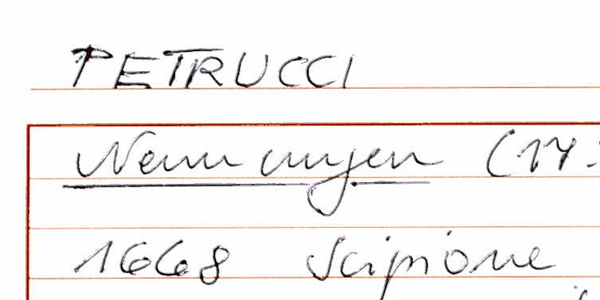 PETRUCCI
Nennungen (17
1668 Scipione